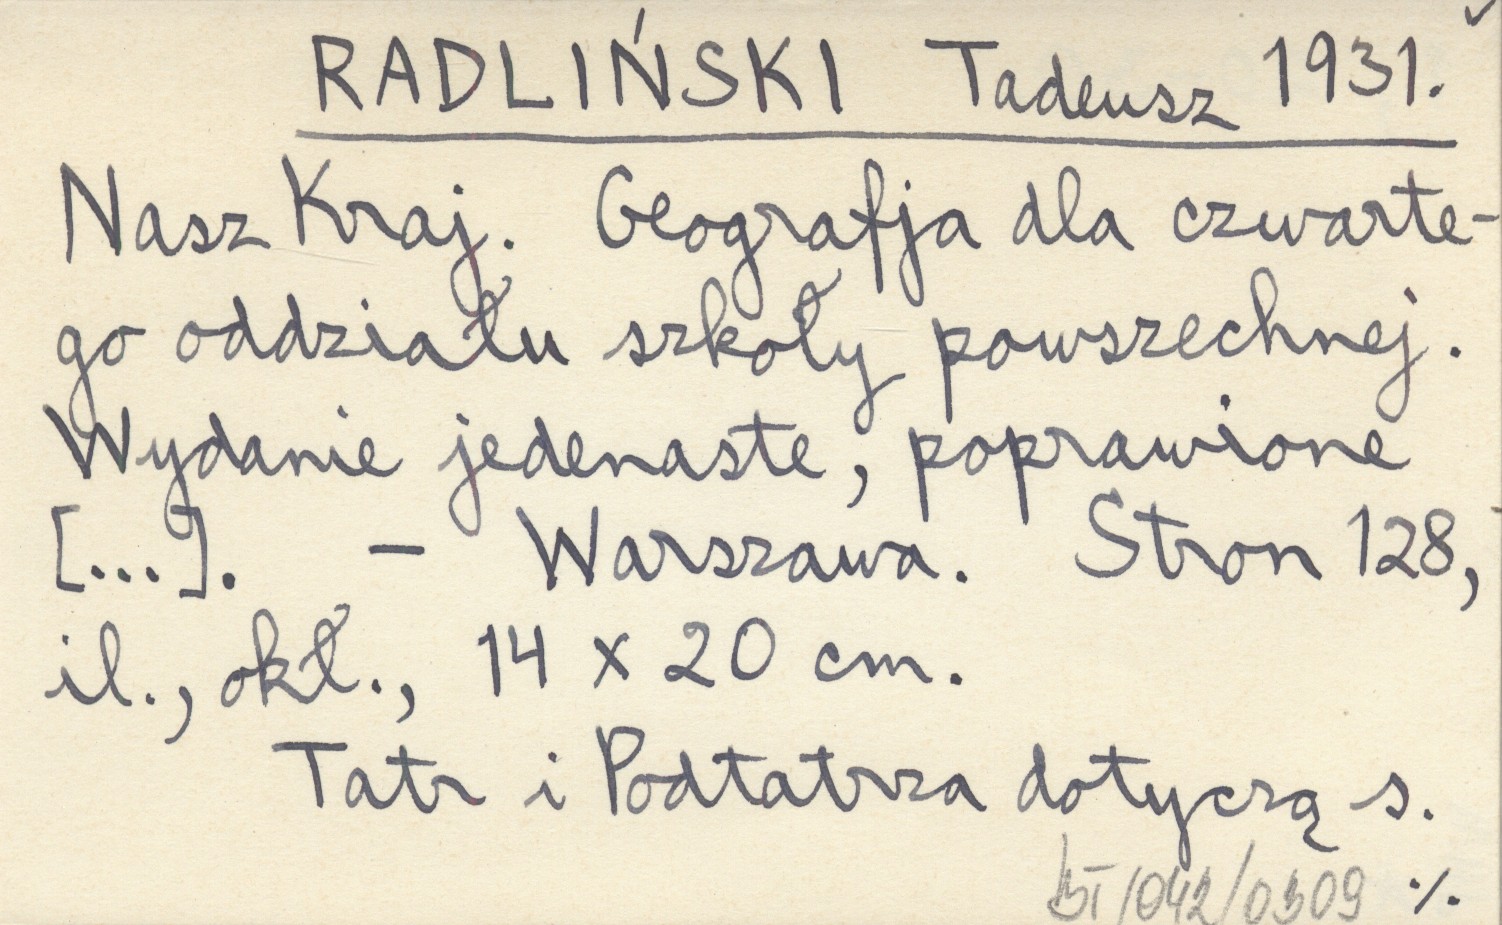 RADLIŃSKI Tadeusz 1931.
Nasz Kraj. Geografja dla czwarte-
go oddziału szkoły powszechnej.
Wydanie jedenaste, poprawione
[...]. – Warszawa. Stron 128,
il., okł., 14 x 20 cm.
Tatr i Podtatrza dotyczą s.
BT/042/0309 ./.